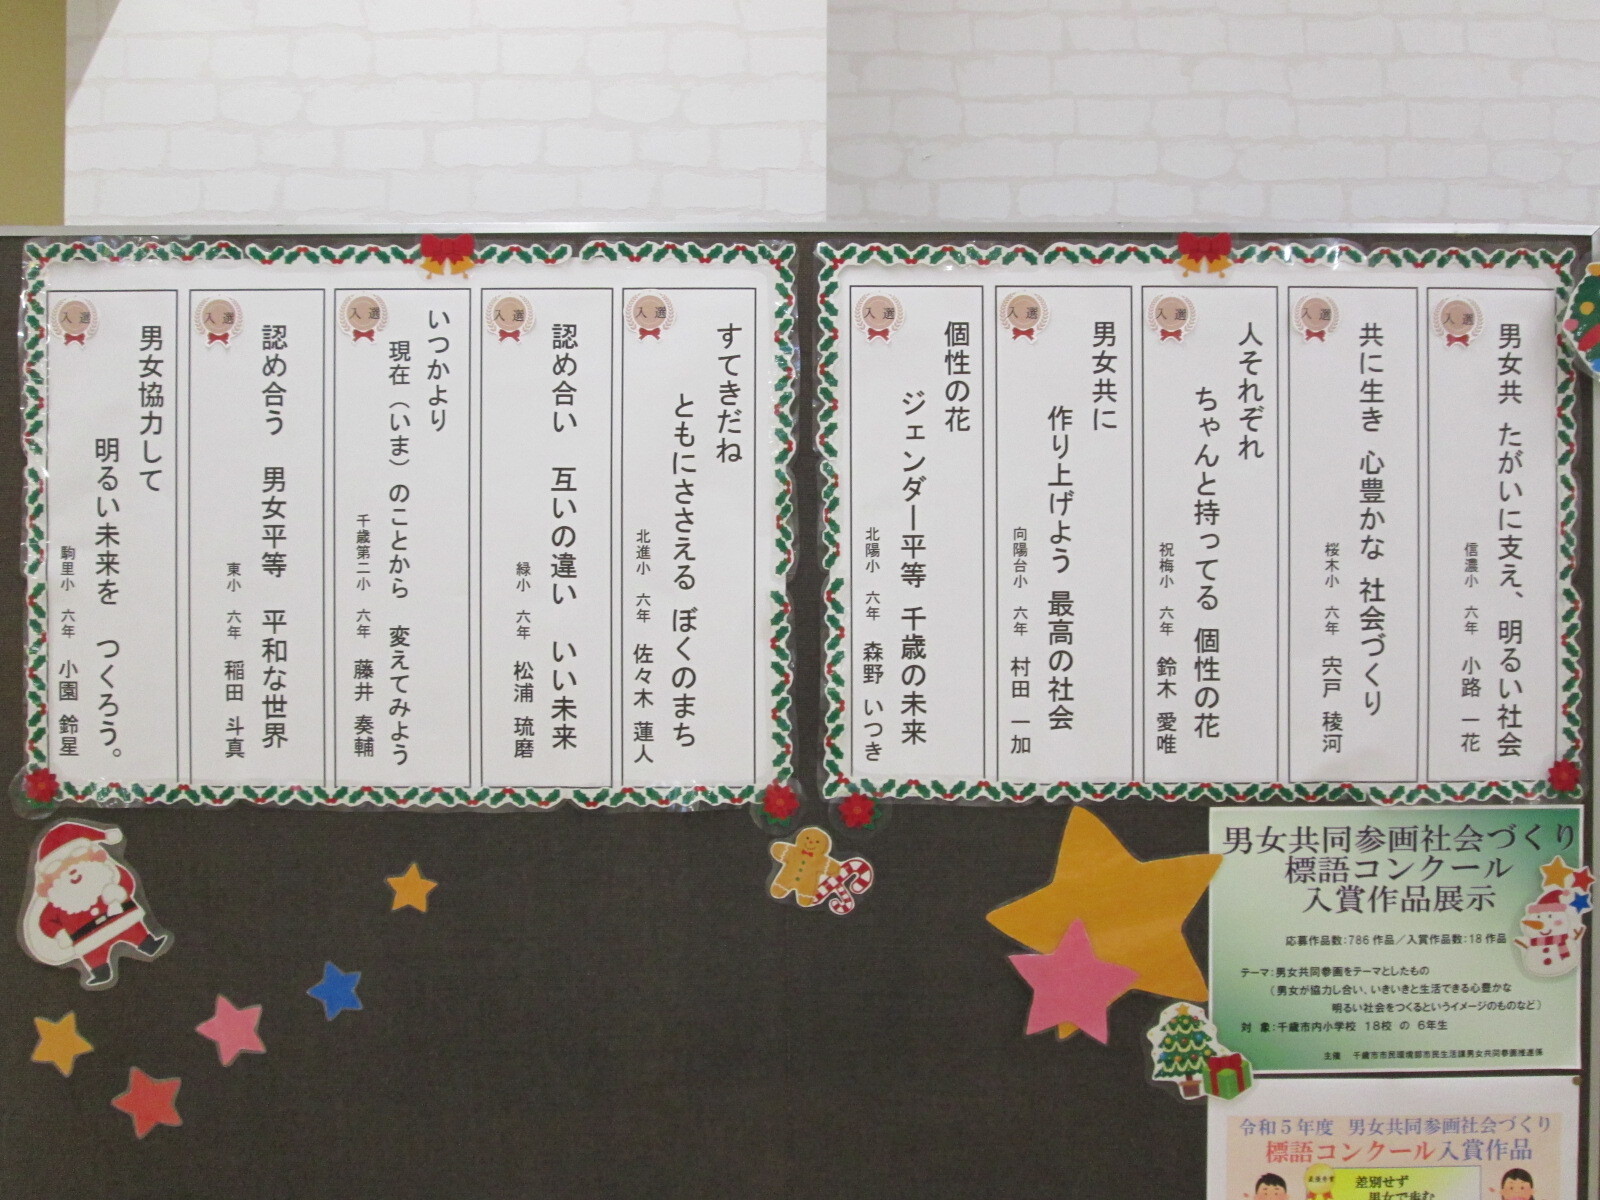 入選
男女共 たがいに支え、明るい社会
信濃小 六年 小路 一花
入選
共に生き 心豊かな 社会づくり
桜木小 六年 宍戸 稜河
入選
人それぞれ
ちゃんと持ってる 個性の花
祝梅小 六年 鈴木 愛唯
入選
男女共に
作り上げよう 最高の社会
向陽台小 六年 村田 一加
入選
個性の花
ジェンダー平等 千歳の未来
北陽小 六年 森野 いつき
入選
すてきだね
ともにささえる ぼくのまち
北進小 六年 佐々木 蓮人
入選
認め合い 互いの違い いい未来
緑小 六年 松浦 琉磨
入選
いつかより
現在（いま）のことから 変えてみよう
千歳第二小 六年 藤井 奏輔
入選
認め合う 男女平等 平和な世界
東小 六年 稲田 斗真
入選
男女協力して
明るい未来を つくろう。
駒里小 六年 小園 鈴星
男女共同参画社会づくり
標語コンクール
入賞作品展示
応募作品数：786作品／入賞作品数：18作品
テーマ：男女共同参画をテーマとしたもの
（男女が協力し合い、いきいきと生活できる心豊かな
明るい社会をつくるというイメージのものなど）
対 象：千歳市内小学校 18校 の 6年生
主催 千歳市市民環境部市民生活課男女共同参画推進係
令和5年度 男女共同参画社会づくり
標語コンクール入賞作品
差別せず
男女で歩む